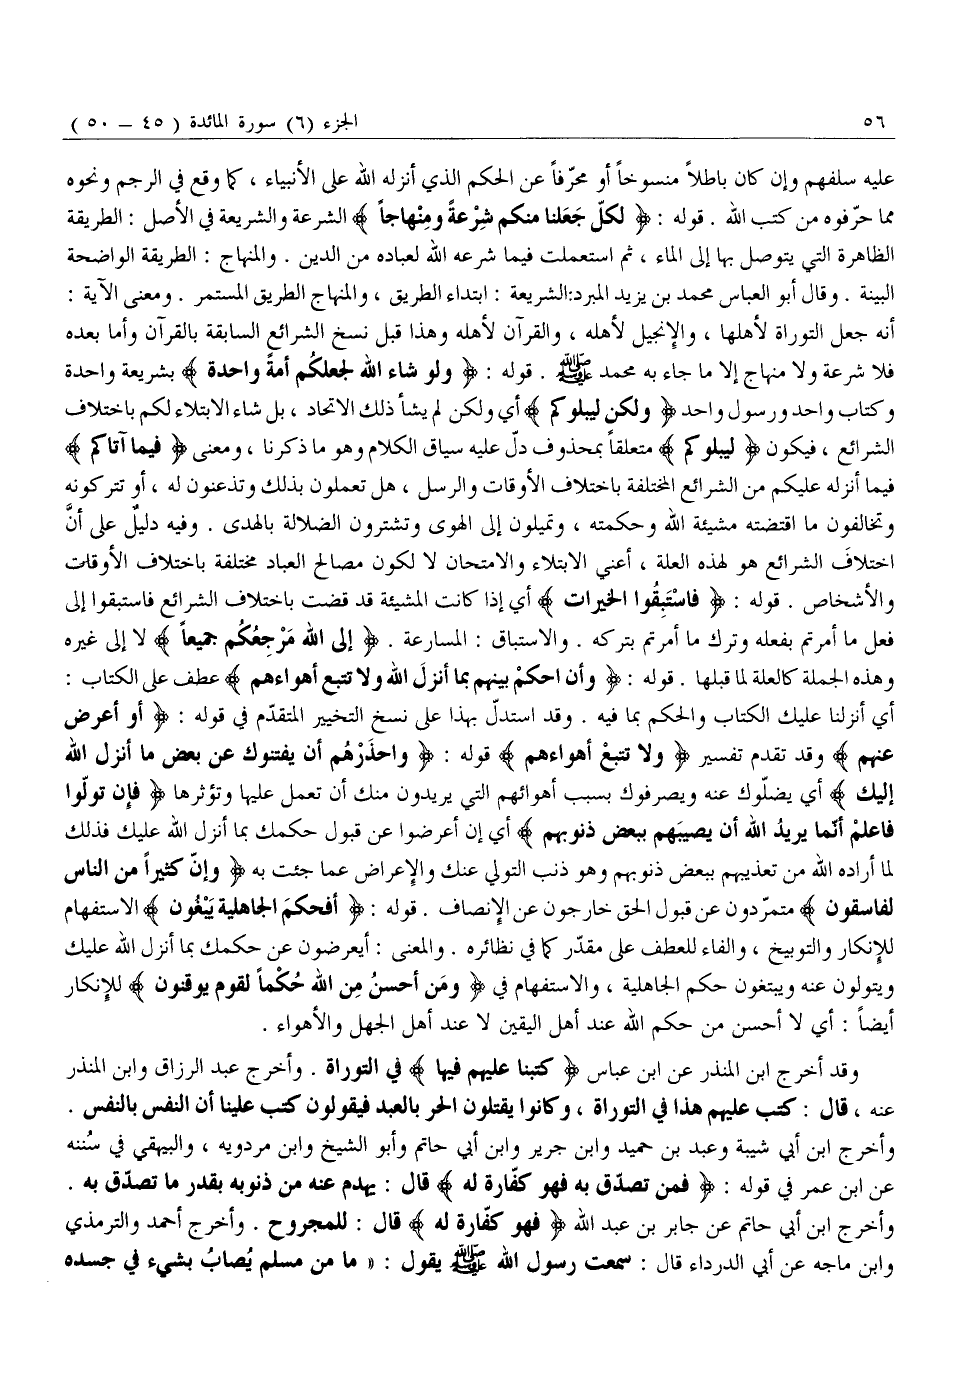 ٥٦ الجزء (٦) سورة المائدة ( ٤٥ – ٥٠ )
عليه سلفهم وإن كان باطلاً منسوخاً أو محرّفاً عن الحكم الذي أنزله الله على الأنبياء ، كما وقع في الرجم ونحوه
مما حرّفوه من كتب الله . قوله : ﴿ لكلّ جَعَلنا منكم شِرْعةً ومِنْهاجاً ﴾ الشرعة والشريعة في الأصل : الطريقة
الظاهرة التي يتوصل بها إلى الماء ، ثم استعملت فيما شرعه الله لعباده من الدين . والمنهاج : الطريقة الواضحة
البينة . وقال أبو العباس محمد بن يزيد المبرد:الشريعة : ابتداء الطريق ، والمنهاج الطريق المستمر . ومعنى الآية :
أنه جعل التوراة لأهلها ، والإنجيل لأهله ، والقرآن لأهله وهذا قبل نسخ الشرائع السابقة بالقرآن وأما بعده
فلا شرعة ولا منهاج إلا ما جاء به محمد ﷺ . قوله : ﴿ ولو شاء الله لجعلكُم أمةً واحدة ﴾ بشريعة واحدة
وكتاب واحد ورسول واحد ﴿ ولكن ليبلوكم ﴾ أي ولكن لم يشأ ذلك الاتحاد ، بل شاء الابتلاء لكم باختلاف
الشرائع ، فيكون ﴿ ليبلوكم ﴾ متعلقاً بمحذوف دلّ عليه سياق الكلام وهو ما ذكرنا ، ومعنى ﴿ فيما آتاكم ﴾
فيما أنزله عليكم من الشرائع المختلفة باختلاف الأوقات والرسل ، هل تعملون بذلك وتذعنون له ، أو تتركونه
وتخالفون ما اقتضته مشيئة الله وحكمته ، وتميلون إلى الهوى وتشترون الضلالة بالهدى . وفيه دليلٌ على أنَّ
اختلافَ الشرائع هو لهذه العلة ، أعني الابتلاء والامتحان لا لكون مصالح العباد مختلفة باختلاف الأوقات
والأشخاص . قوله : ﴿ فاسْتَبِقُوا الخيرات ﴾ أي إذا كانت المشيئة قد قضت باختلاف الشرائع فاستبقوا إلى
فعل ما أمرتم بفعله وترك ما أمرتم بتركه . والاستباق : المسارعة . ﴿ إلى الله مَرْجِعُكُم جميعاً ﴾ لا إلى غيره
وهذه الجملة كالعلة لما قبلها . قوله : ﴿ وأن احكمْ بينهم بما أنزلَ الله ولا تتبع أهواءهم ﴾ عطف على الكتاب :
أي أنزلنا عليك الكتاب والحكم بما فيه . وقد استدلّ بهذا على نسخ التخيير المتقدّم في قوله : ﴿ أو أعرض
عنهم ﴾ وقد تقدم تفسير ﴿ ولا تتبعْ أهواءهم ﴾ قوله : ﴿ واحذَرْهُم أن يفتنوك عن بعض ما أنزل الله
إليك ﴾ أي يضلّوك عنه ويصرفوك بسبب أهوائهم التي يريدون منك أن تعمل عليها وتؤثرها ﴿ فإن تولّوا
فاعلمْ أنّما يريدُ الله أن يصيبَهم ببعض ذنوبهم ﴾ أي إن أعرضوا عن قبول حكمك بما أنزل الله عليك فذلك
لما أراده الله من تعذيبهم ببعض ذنوبهم وهو ذنب التولي عنك والإعراض عما جئت به ﴿ وإنّ كثيراً من الناس
لفاسقون ﴾ متمرّدون عن قبول الحق خارجون عن الإنصاف . قوله : ﴿ أفحكمَ الجاهلية يَبْغُون ﴾ الاستفهام
للإنكار والتوبيخ ، والفاء للعطف على مقدّر كما في نظائره . والمعنى : أيعرضون عن حكمك بما أنزل الله عليك
ويتولون عنه ويبتغون حكم الجاهلية ، والاستفهام في ﴿ ومَن أحسنُ مِن الله حُكْماً لقوم يوقنون ﴾ للإنكار
أيضاً : أي لا أحسن من حكم الله عند أهل اليقين لا عند أهل الجهل والأهواء .
وقد أخرج ابن المنذر عن ابن عباس ﴿ كتبنا عليهم فيها ﴾ في التوراة . وأخرج عبد الرزاق وابن المنذر
عنه ، قال : كتب عليهم هذا في التوراة ، وكانوا يقتلون الحر بالعبد فيقولون كتب علينا أن النفس بالنفس .
وأخرج ابن أبي شيبة وعبد بن حميد وابن جرير وابن أبي حاتم وأبو الشيخ وابن مردويه ، والبيهقي في سُننه
عن ابن عمر في قوله : ﴿ فمن تصدّق به فهو كفّارة له ﴾ قال : يهدم عنه من ذنوبه بقدر ما تصدّق به .
وأخرج ابن أبي حاتم عن جابر بن عبد الله ﴿ فهو كفّارة له ﴾ قال : للمجروح . وأخرج أحمد والترمذي
وابن ماجه عن أبي الدرداء قال : سمعت رسول الله ﷺ يقول : « ما من مسلم يُصابُ بشيء في جسده